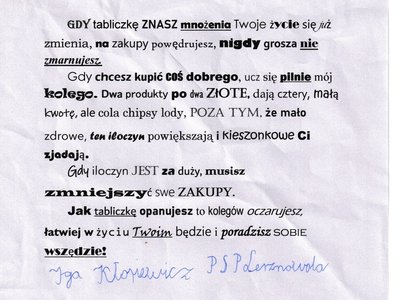 GDY tabliczkę ZNASZ mnożenia Twoje życie się już
zmienia, na zakupy powędrujesz, nigdy grosza nie
zmarnujesz.
Gdy chcesz kupić coś dobrego, ucz się pilnie mój
kolego. Dwa produkty po dwa ZŁOTE, dają cztery, małą
kwotę, ale cola chipsy lody, POZA TYM, że mało
zdrowe, ten iloczyn powiększają i kieszonkowe Ci
zjadają.
Gdy iloczyn JEST za duży, musisz
zmniejszyć swe ZAKUPY.
Jak tabliczkę opanujesz to kolegów oczarujesz,
łatwiej w życiu Twoim będzie i poradzisz SOBIE
wszędzie!
Iga PSP